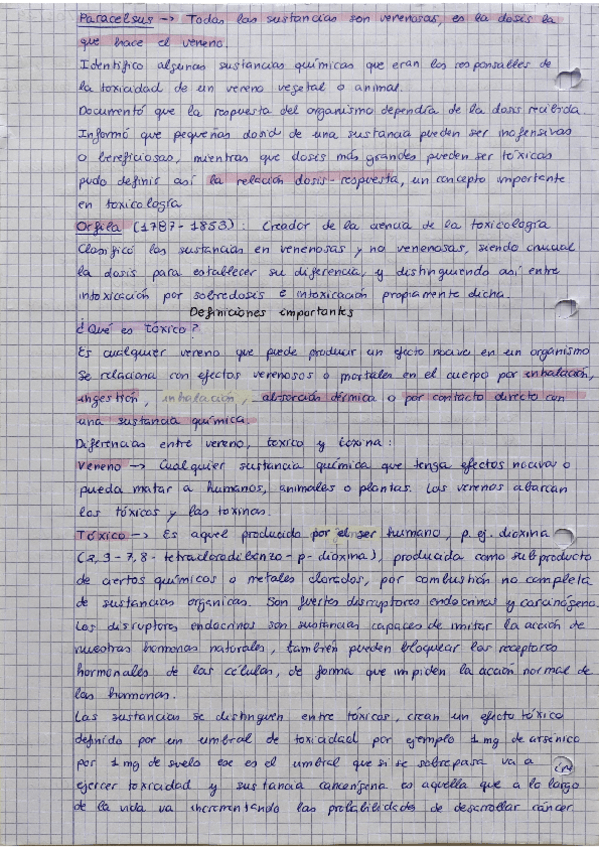 Paracelsus -> Todas las sustancias son venenosas, es la dosis la
que hace el veneno.
Identifico algunas sustancias químicas que eran los responsables de
la toxicidad de un veneno vegetal o animal.
Documentó que la respuesta del organismo dependía de la dosis recibida.
Informó que pequeñas dosid de una sustancia pueden ser inofensivas
o beneficiosas, mientras que dosis más grandes pueden ser tóxicas
pudo definir así la relación dosis-respuesta, un concepto importante
en toxicología
Orfila (1787-1853): Creador de la ciencia de la toxicología
Clasificó las sustancias en venenosas y no venenosas, siendo crucial
la dosis para establecer su diferencia, y distinguiendo así entre
intoxicación por sobredosis e intoxicación propiamente dicha.
Definiciones importantes
¿Qué es tóxico?
Es cualquier veneno que puede producir un efecto nocivo en un organismo
Se relaciona con efectos venenosos o mortales en el cuerpo por inhalación,
ingestión, inhalación, absorción dérmica o por contacto directo con
una sustancia química.
Diferencias entre veneno, toxico y toxina:
Veneno -> Cualquier sustancia química que tenga efectos nocivos o
pueda matar a humanos, animales o plantas. Los venenos abarcan
los tóxicos y las toxinas.
Tóxico -> Es aquel producido por el ser humano, p. ej. dioxina
(2,3-7,8-tetraclorodibenzo-p-dioxina), producida como subproducto
de ciertos químicos o metales clorados, por combustión no completa
de sustancias organicas. Son fuertes disruptores endocrinos y carcinógeno.
Los disruptores endocrinos son sustancias capaces de imitar la acción de
nuestras hormonas naturales, también pueden bloquear los receptores
hormonales de las células, de forma que impiden la acción normal de
las hormonas.
Las sustancias se distinguen entre tóxicos, crean un efecto tóxico
definido por em umbral de toxicidad por ejemplo 1 mg de arsénico
por 1 mg de suelo ese es el umbral que si se sobrepasa va a
ejercer toxicidad y sustancia cancerígena es aquella que a lo largo
de la vida va incrementando las probabilidades de desarrollar cáncer